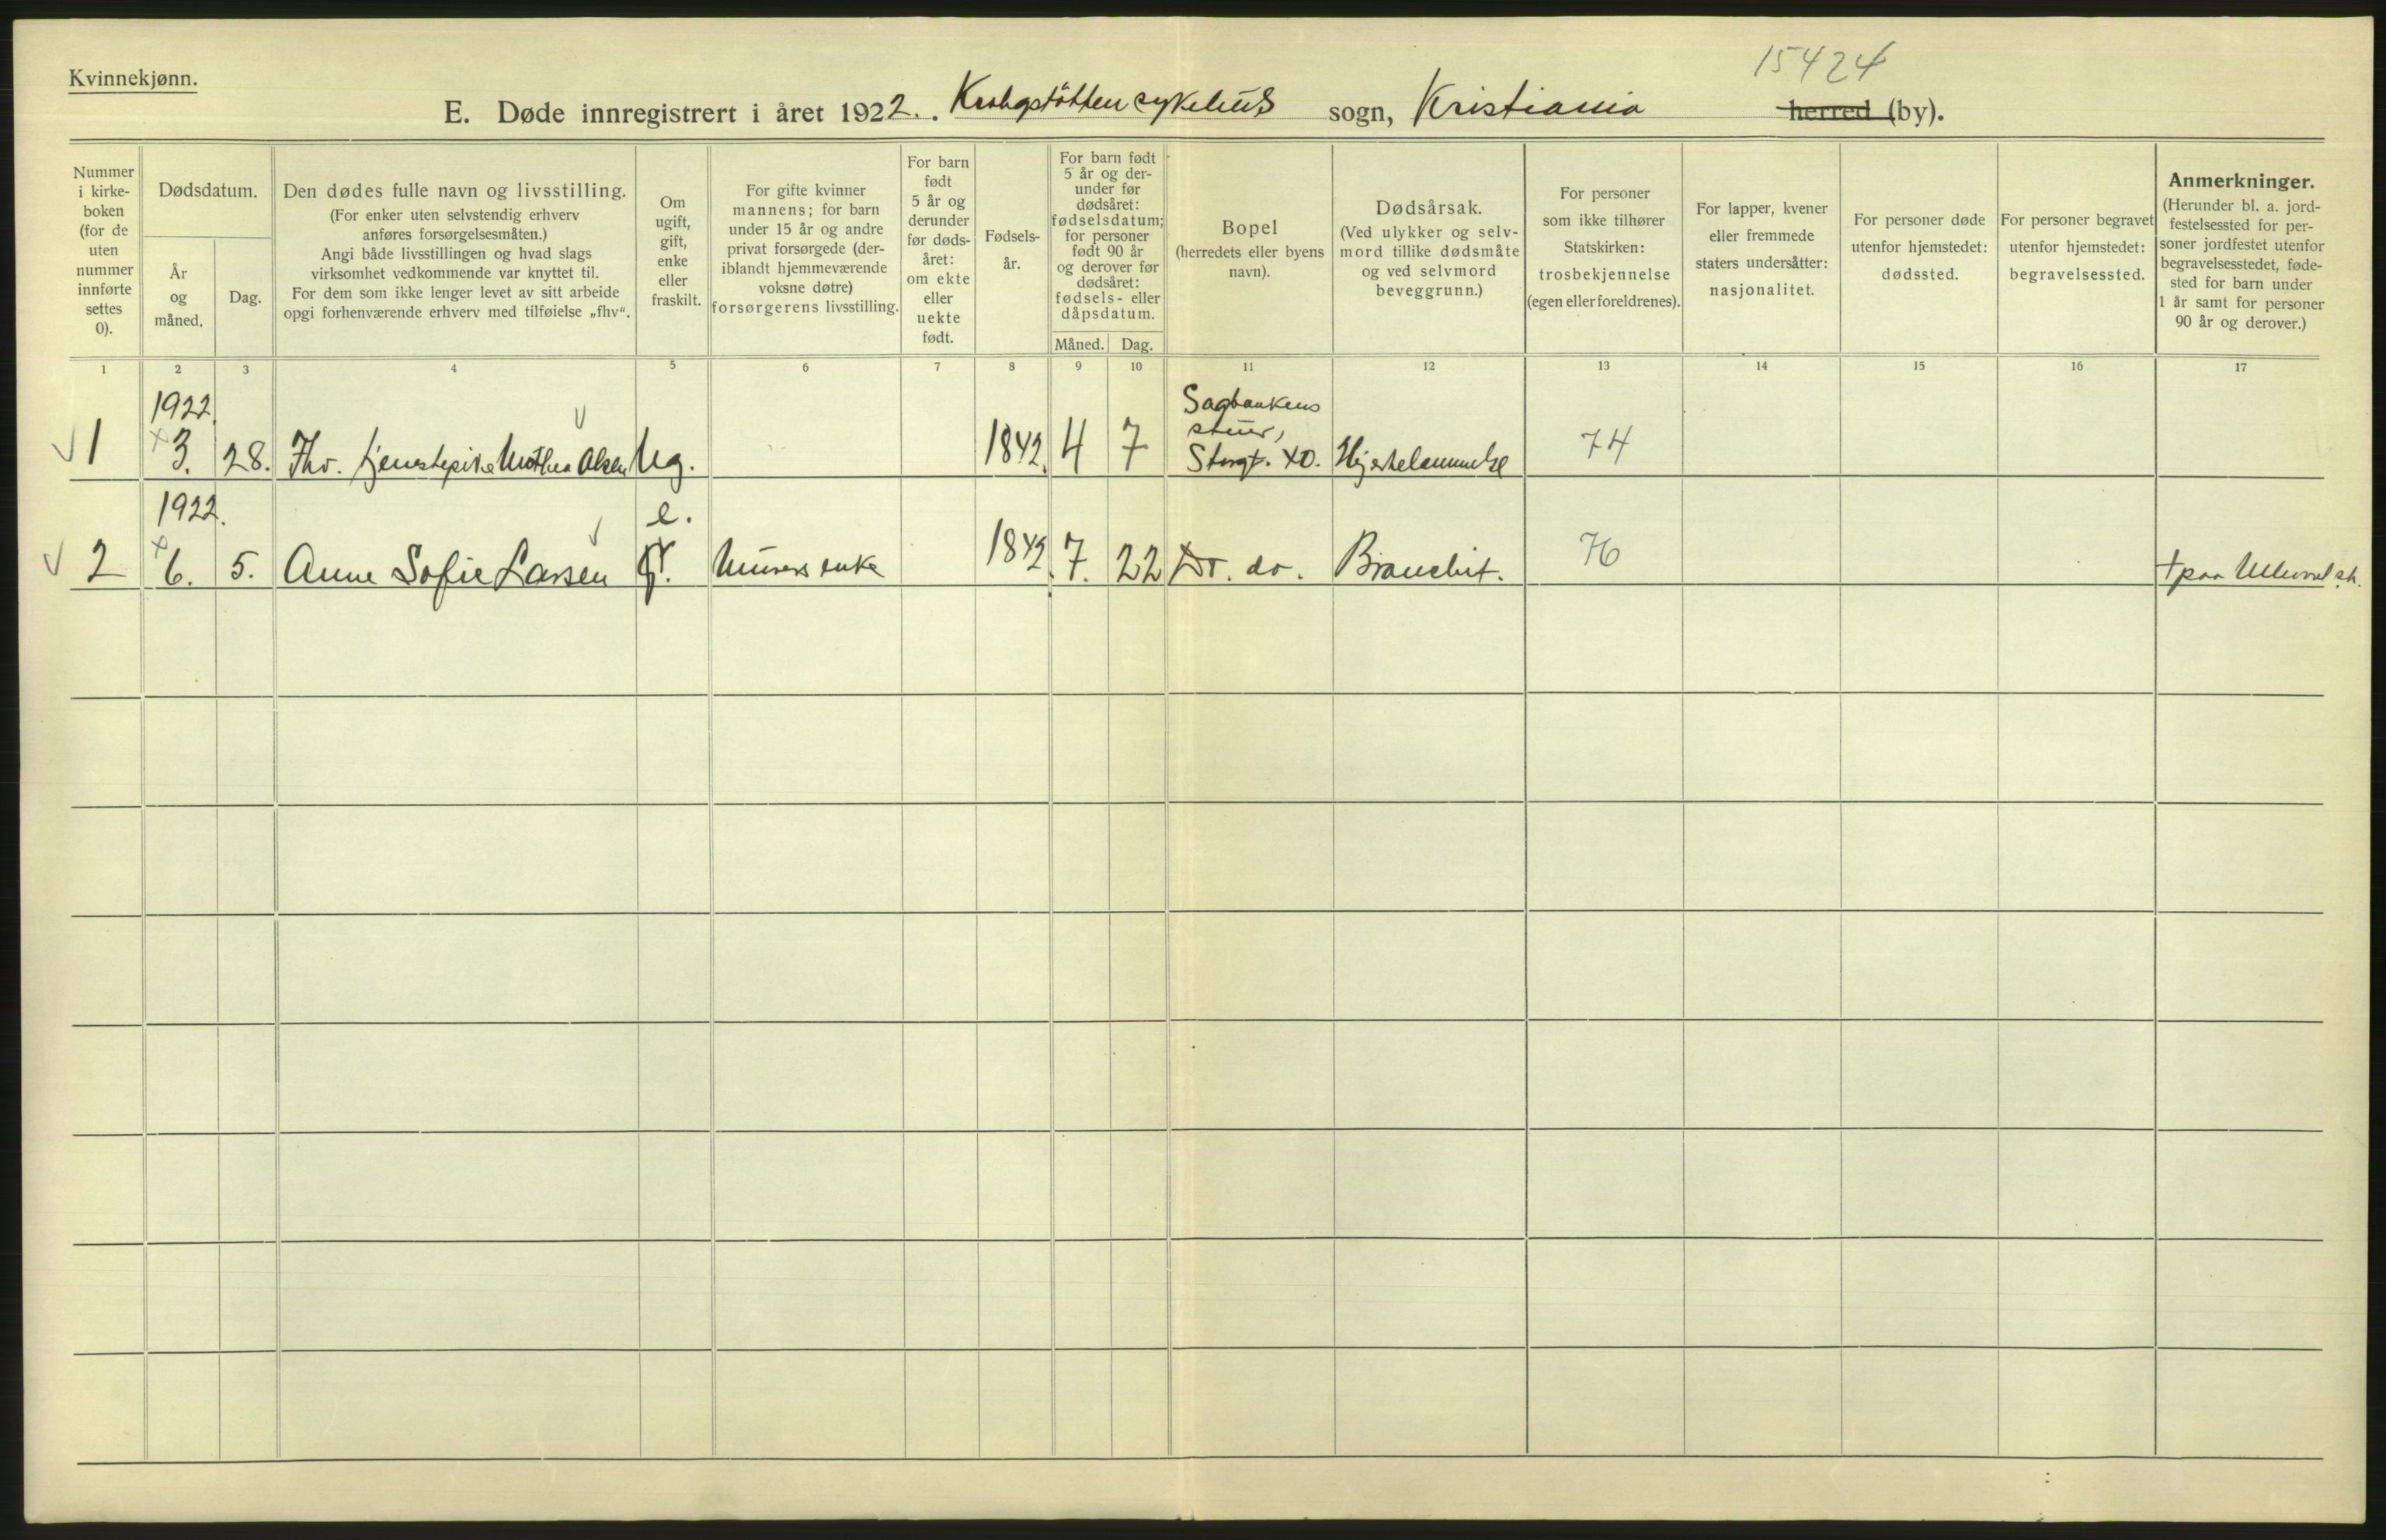 15424
Kvinnekjønn.
E. Døde innregistrert i året 1922. Krohgstötten sykehus sogn, Kristiania herred (by).
Nummer
i kirke-
boken
(for de
uten
nummer
innførte
settes
0).
Dødsdatum.
År
og
måned.
Dag.
Den dødes fulle navn og livsstilling.
(For enker uten selvstendig erhverv
anføres forsørgelsesmåten.)
Angi både livsstillingen og hvad slags
virksomhet vedkommende var knyttet til.
For dem som ikke lenger levet av sitt arbeide
opgi forhenværende erhverv med tilføielse „fhv“.
Om
ugift,
gift,
enke
eller
fraskilt.
For gifte kvinner
mannens; for barn
under 15 år og andre
privat forsørgede (der-
iblandt hjemmeværende
voksne døtre)
forsørgerens livsstilling.
For barn
født
5 år og
derunder
før døds-
året:
om ekte
eller
uekte
født.
Fødsels-
år.
For barn født
5 år og der-
under før
dødsåret:
fødselsdatum;
for personer
født 90 år
og derover før
dødsåret:
fødsels- eller
dåpsdatum.
Måned. Dag.
Bopel
(herredets eller byens
navn).
Dødsårsak.
(Ved ulykker og selv-
mord tillike dødsmåte
og ved selvmord
beveggrunn.)
For personer
som ikke tilhører
Statskirken:
trosbekjennelse
(egen eller foreldrenes).
For lapper, kvener
eller fremmede
staters undersåtter:
nasjonalitet.
For personer døde
utenfor hjemstedet:
dødssted.
For personer begravet
utenfor hjemstedet:
begravelsessted.
Anmerkninger.
(Herunder bl. a. jord-
festelsessted for per-
soner jordfestet utenfor
begravelsesstedet, føde-
sted for barn under
1 år samt for personer
90 år og derover.)
1 2 3 4 5 6 7 8 9 10 11 12 13 14 15 16 17
1922
Sagbankens
stuer,
1 3. 28. Fhv. tjenestepike Mathea Olsen Ug. 1842. 4 7 Storgt. 40. Hjertelammelse 74
1922. e.
2 6. 5. Anne Sofie Larsen G. Murers enke 1842. 7. 22 Do. do. Bronchit. 76 † paa Ullevaal sh.